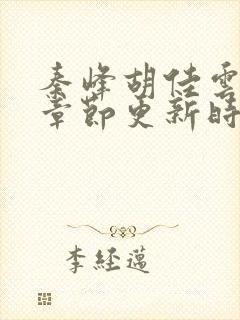 秦峰胡佳雲
章節更新時
李經邁